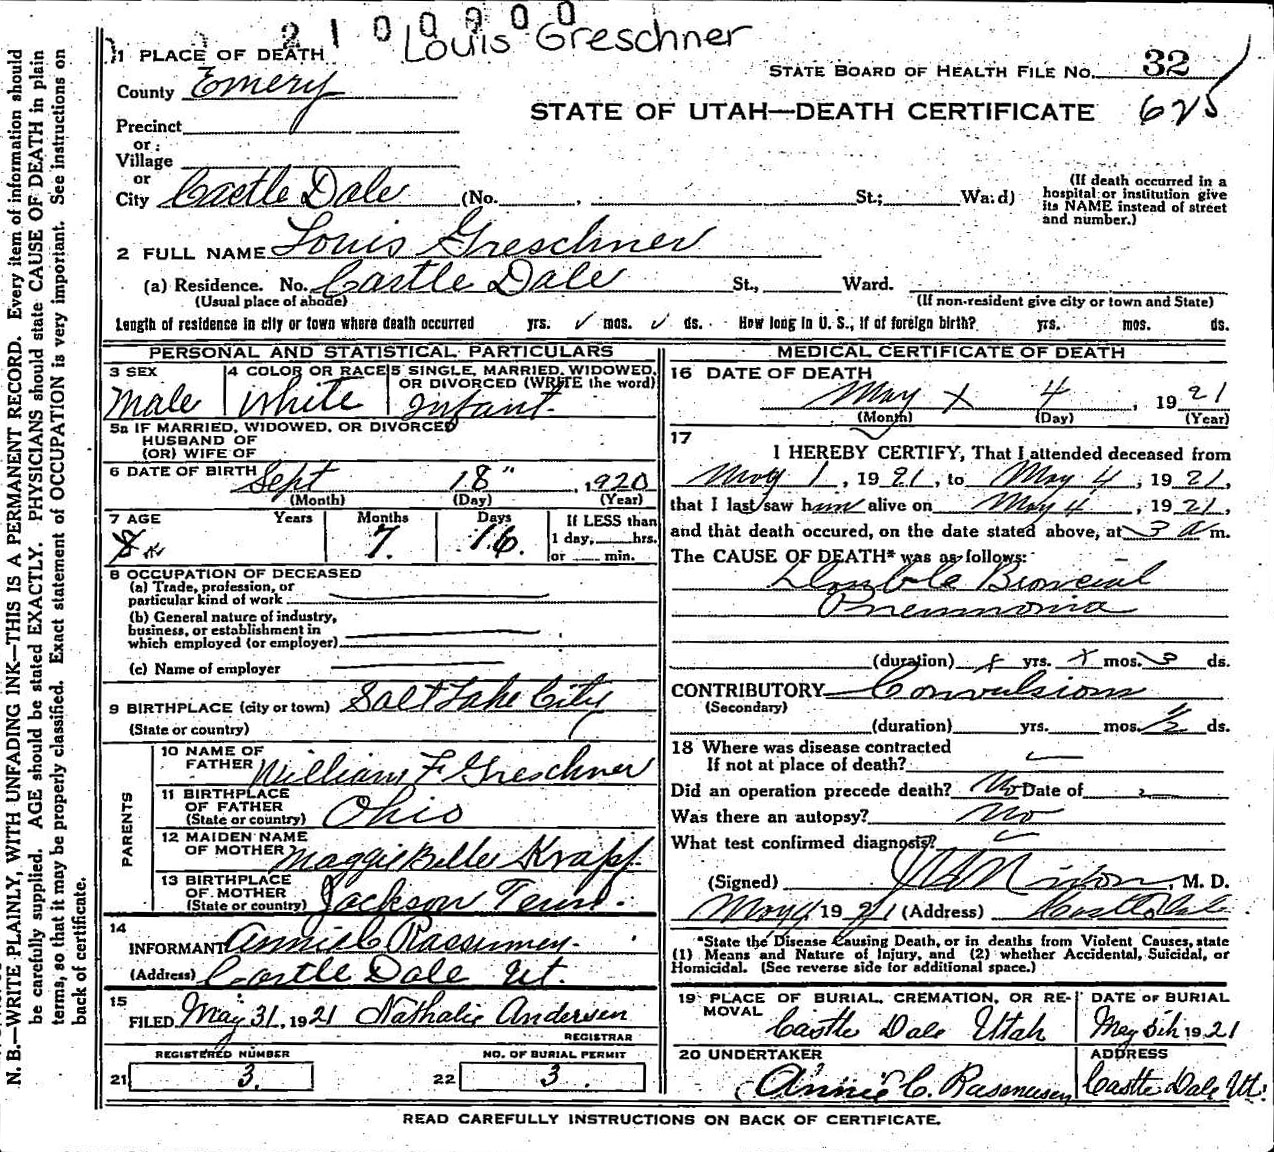 2 1 0 0 0 0 0
Louis Greschner
1 PLACE OF DEATH
County Emery
STATE BOARD OF HEALTH FILE No. 32
STATE OF UTAH—DEATH CERTIFICATE 625
Precinct
or
Village
or
City Castle Dale (No. , St.; Ward)
(If death occurred in a hospital or institution give its NAME instead of street and number.)
2 FULL NAME Louis Greschner
(a) Residence. No. Castle Dale St., Ward.
(Usual place of abode) (If non-resident give city or town and State)
Length of residence in city or town where death occurred yrs. ✓ mos. ✓ ds. How long in U. S., if of foreign birth? yrs. mos. ds.
PERSONAL AND STATISTICAL PARTICULARS
3 SEX 4 COLOR OR RACE 5 SINGLE, MARRIED, WIDOWED,
OR DIVORCED (WRITE the word)
Male White Infant.
5a IF MARRIED, WIDOWED, OR DIVORCED
HUSBAND OF
(OR) WIFE OF
6 DATE OF BIRTH Sept 18" , 1920
(Month) (Day) (Year)
7 AGE Years Months Days If LESS than
7. 16. 1 day, hrs.
or min.
8 OCCUPATION OF DECEASED
(a) Trade, profession, or
particular kind of work
(b) General nature of industry,
business, or establishment in
which employed (or employer)
(c) Name of employer
9 BIRTHPLACE (city or town) Salt Lake City
(State or country)
PARENTS
10 NAME OF
FATHER William F Greschner
11 BIRTHPLACE
OF FATHER
(State or country) Ohio
12 MAIDEN NAME
OF MOTHER Maggie Belle Krapf
13 BIRTHPLACE
OF MOTHER
(State or country) Jackson Tenn.
14
INFORMANT Annie C Rasmussen
(Address) Castle Dale Ut.
15
FILED May 31, 1921 Nathalie Andersen
REGISTRAR
REGISTERED NUMBER NO. OF BURIAL PERMIT
21 3. 22 3.
MEDICAL CERTIFICATE OF DEATH
16 DATE OF DEATH
May x 4 , 1921
(Month) (Day) (Year)
17
I HEREBY CERTIFY, That I attended deceased from
May 1 , 1921, to May 4, 1921,
that I last saw him alive on May 4, 1921,
and that death occured, on the date stated above, at 3 a m.
The CAUSE OF DEATH* was as follows:
Double Broncial
Pneumonia
(duration) x yrs. x mos. 3 ds.
CONTRIBUTORY Convulsions
(Secondary)
(duration) yrs. mos. ½ ds.
18 Where was disease contracted
If not at place of death?
Did an operation precede death? No Date of
Was there an autopsy? No
What test confirmed diagnosis?
(Signed) Nixon, M. D.
May 4 1921 (Address) Castle Dale
*State the Disease Causing Death, or in deaths from Violent Causes, state
(1) Means and Nature of Injury, and (2) whether Accidental, Suicidal, or
Homicidal. (See reverse side for additional space.)
19 PLACE OF BURIAL, CREMATION, OR RE-
MOVAL
Castle Dale Utah
DATE OF BURIAL
May 5th 1921
20 UNDERTAKER
Annie C. Rasmussen
ADDRESS
Castle Dale Ut.
READ CAREFULLY INSTRUCTIONS ON BACK OF CERTIFICATE.
N. B.—WRITE PLAINLY, WITH UNFADING INK—THIS IS A PERMANENT RECORD. Every item of information should
be carefully supplied. AGE should be stated EXACTLY. PHYSICIANS should state CAUSE OF DEATH in plain
terms, so that it may be properly classified. Exact statement of OCCUPATION is very important. See instructions on
back of certificate.